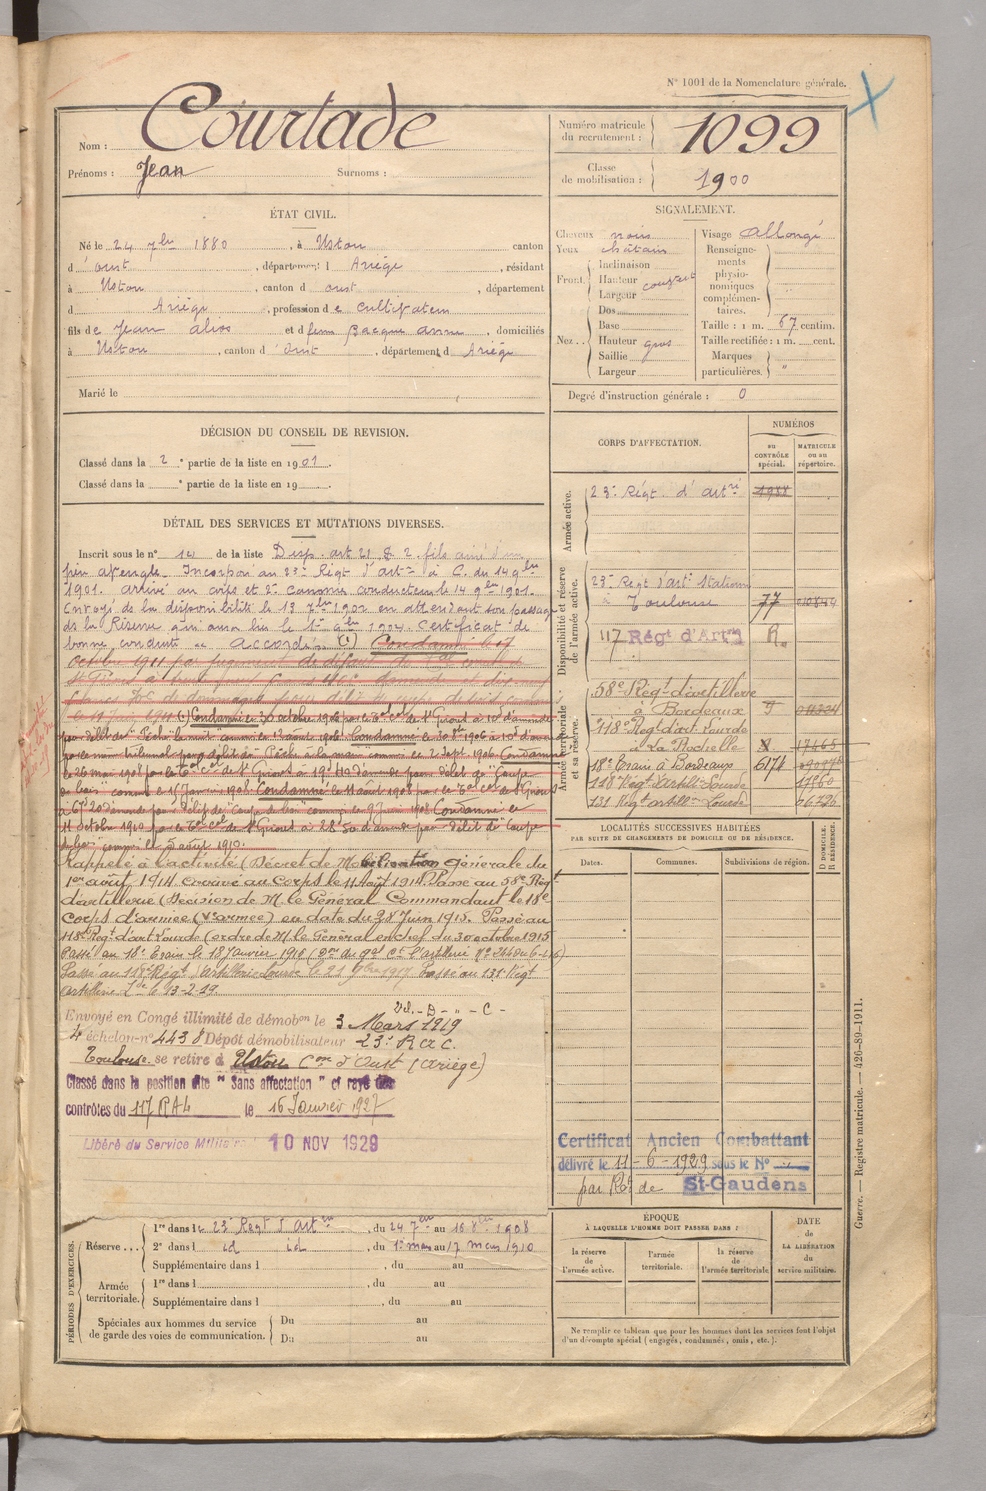 N° 1001 de la Nomenclature générale.
Nom : Courtade
Prénoms : Jean Surnoms :
Numéro matricule du recrutement : 1099
Classe de mobilisation : 1900
ÉTAT CIVIL.
Né le 24 7bre 1880, à Ustou canton
d'oust, département d Ariège, résidant
à Ustou, canton d oust, département
d Ariège, profession de cultivateur
fils de Jean alias et d feue Bacque anna, domiciliés
à Ustou, canton d'oust, département d Ariège
Marié le
SIGNALEMENT.
Cheveux noirs Visage allongé
Yeux châtain
Front Inclinaison
Hauteur couvert
Largeur
Nez Dos
Base
Hauteur gros
Saillie
Largeur
Renseignements physionomiques complémentaires.
Taille : 1 m. 67 centim.
Taille rectifiée : 1 m. cent.
Marques particulières. "
Degré d'instruction générale : 0
DÉCISION DU CONSEIL DE REVISION.
Classé dans la 2e partie de la liste en 1901.
Classé dans la partie de la liste en 19
DÉTAIL DES SERVICES ET MUTATIONS DIVERSES.
Inscrit sous le n° 12 de la liste Disp. art 21 § 2. fils ainé d'un
père aveugle. Incorporé au 23e Régt d'artie à C. du 14 9bre
1901. arrivé au corps et 2e canonnier conducteur le 14 9bre 1901.
Envoyé de la disponibilité le 13 7bre 1902 en attendant son passage
ds la Réserve qui aura lieu le 1er 9bre 1904. Certificat de
bonne conduite " Accordé. (1) Condamné le 17
Octobre 1911 par jugement de défaut du
(1) Condamné le 30 octobre 1906 par le Tal cel de St Girons à 10f d'amende
pour délit de "Pêche la nuit" commis le 13 août 1906. Condamné le 30 8bre 1906 à 10f d'amende
par le même tribunal pour délit de "Pêche à la main" commis le 2 Sept. 1906. Condamné
le 26 mai 1908 par le Tal cel de St Girons à 19f 40 d'amende pour délit de "Coupe
de bois" commis le 15 janvier 1908. Condamné le 11 août 1908 par le Tal cel de St Girons
à 67f20 d'amende pour délit de "coupe de bois" commis le 1908. Condamné le
11 octobre 1910 par le Tal cel de St Girons à 28f 50 d'amende pour délit de "Coupe
de bois" commis le 5 août 1910.
Rappelé à l'activité (Décret de Mobilisation générale du
1er août 1914. arrivé au Corps le 11 Août 1914. Passé au 58e Régt
d'artillerie (Décision de M. le Général Commandant le 18e
Corps d'armée (Ve armée) en date du 28 Juin 1915. Passé au
118e Régt d'art Lourde (ordre de M. le Général en chef du 30 octobre 1915
Passé au 18e Train le 18 Janvier 1916
Passé au 118e Régt d'artillerie Lourde le 21 9bre 1917 Passé au 131e Régt
artillerie Lde le 13-2-19.
Envoyé en Congé illimité de démobon le 3 Mars 1919
4e échelon - n° 4438 Dépôt démobilisateur 23e R A C.
Toulouse se retire à Ustou Con d'Oust (Ariège)
Classé dans la position dite "Sans affectation" et rayé des
contrôles du 117 RAL le 16 Janvier 1927
Libéré du Service Militaire 10 NOV 1929
CORPS D'AFFECTATION.
NUMÉROS
au CONTRÔLE spécial.
MATRICULE ou au répertoire.
Armée active.
23e Régt d'artrie 1988
Disponibilité et réserve de l'armée active.
23e Régt d'artie stationné
à Toulouse 77
117 Régt d'Artrie R
Armée territoriale et sa réserve.
58e Régt d'artillerie
à Bordeaux
118e Régt d'art Lourde
à La Rochelle X 17465
18e Train à Bordeaux 6174
118e Régt Artillie Lourde 17760
131 Régt artillie Lourde
LOCALITÉS SUCCESSIVES HABITÉES
PAR SUITE DE CHANGEMENTS DE DOMICILE OU DE RÉSIDENCE.
Dates. Communes. Subdivisions de région. D DOMICILE. R RÉSIDENCE.
Certificat Ancien Combattant
délivré le 11-6-1929 sous le N°
par Rt de St-Gaudens
PÉRIODES D'EXERCICES.
Réserve... 1re dans le 23e Regt d'artrie, du 24 7bre au 1908
2e dans l id id, du 1er mars au 17 mars 1910
Supplémentaire dans l , du au
Armée territoriale. 1re dans l , du au
Supplémentaire dans l , du au
Spéciales aux hommes du service de garde des voies de communication. Du au
Du au
ÉPOQUE
À LAQUELLE L'HOMME DOIT PASSER DANS :
la réserve de l'armée active.
l'armée territoriale.
la réserve de l'armée territoriale
DATE de LA LIBÉRATION du service militaire.
Ne remplir ce tableau que pour les hommes dont les services font l'objet
d'un décompte spécial (engagés, condamnés, omis, etc.).
Guerre. — Registre matricule. — 426-89-1911.